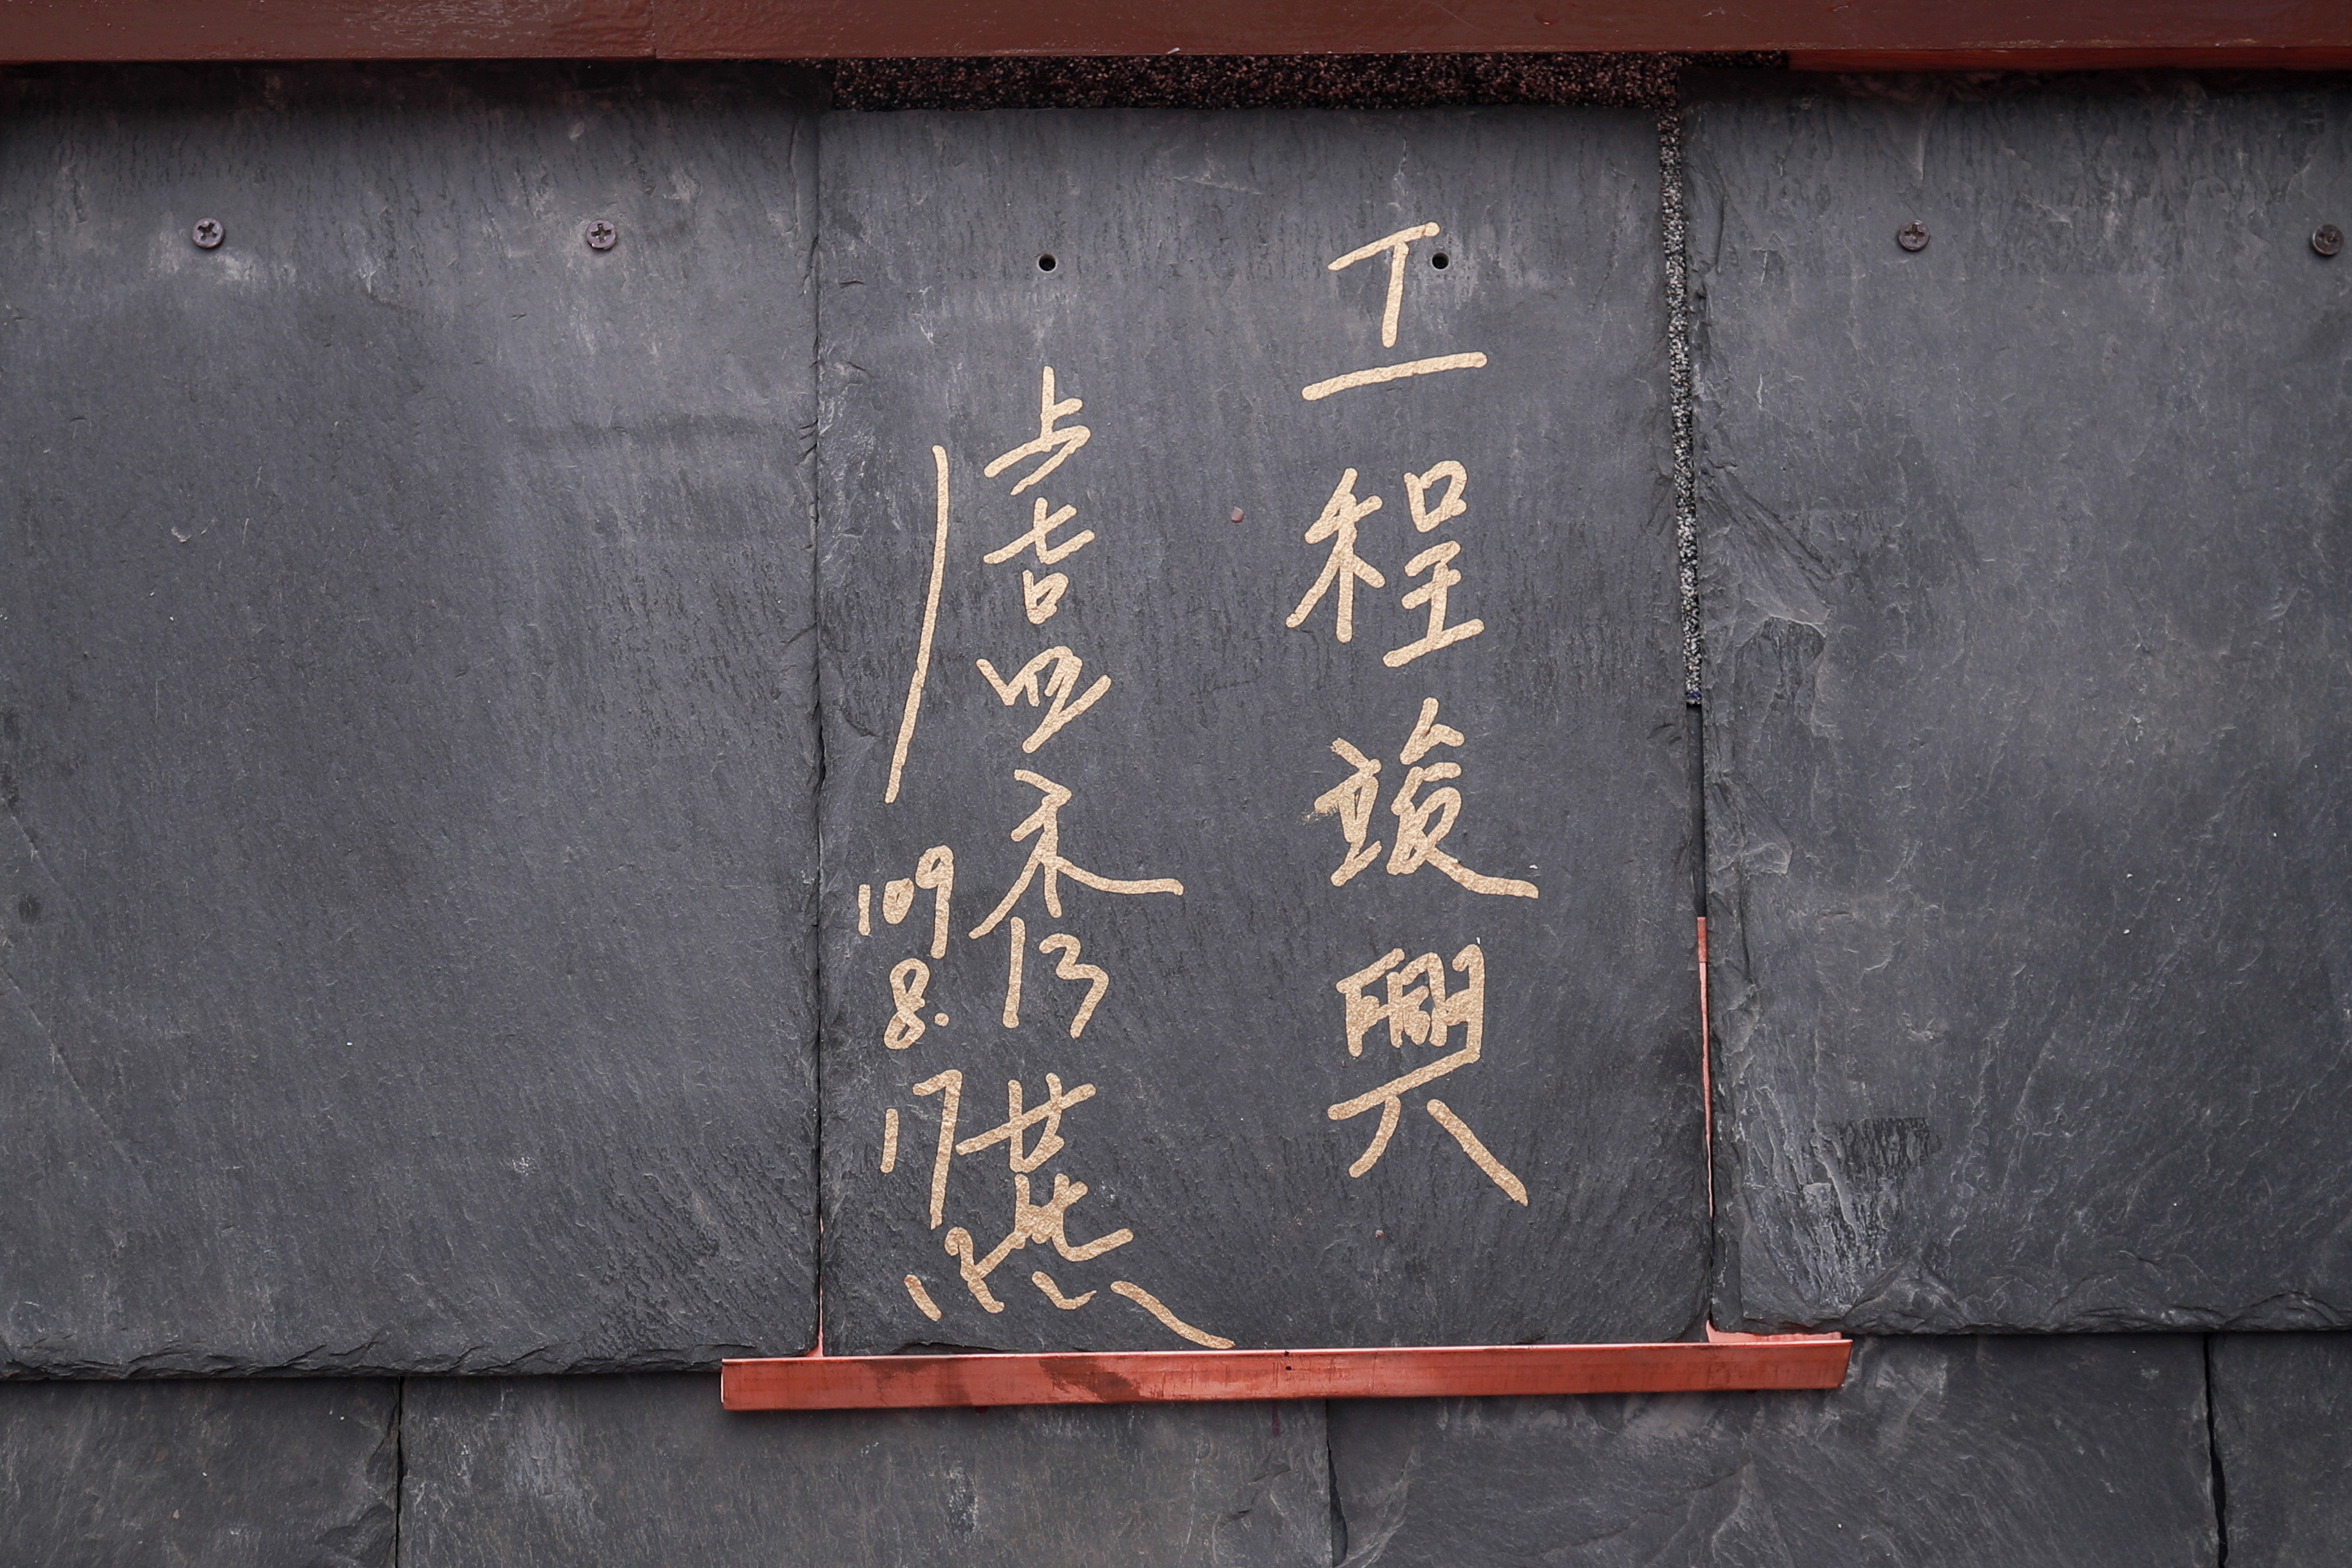 工程竣興
盧秀燕
109.8.17